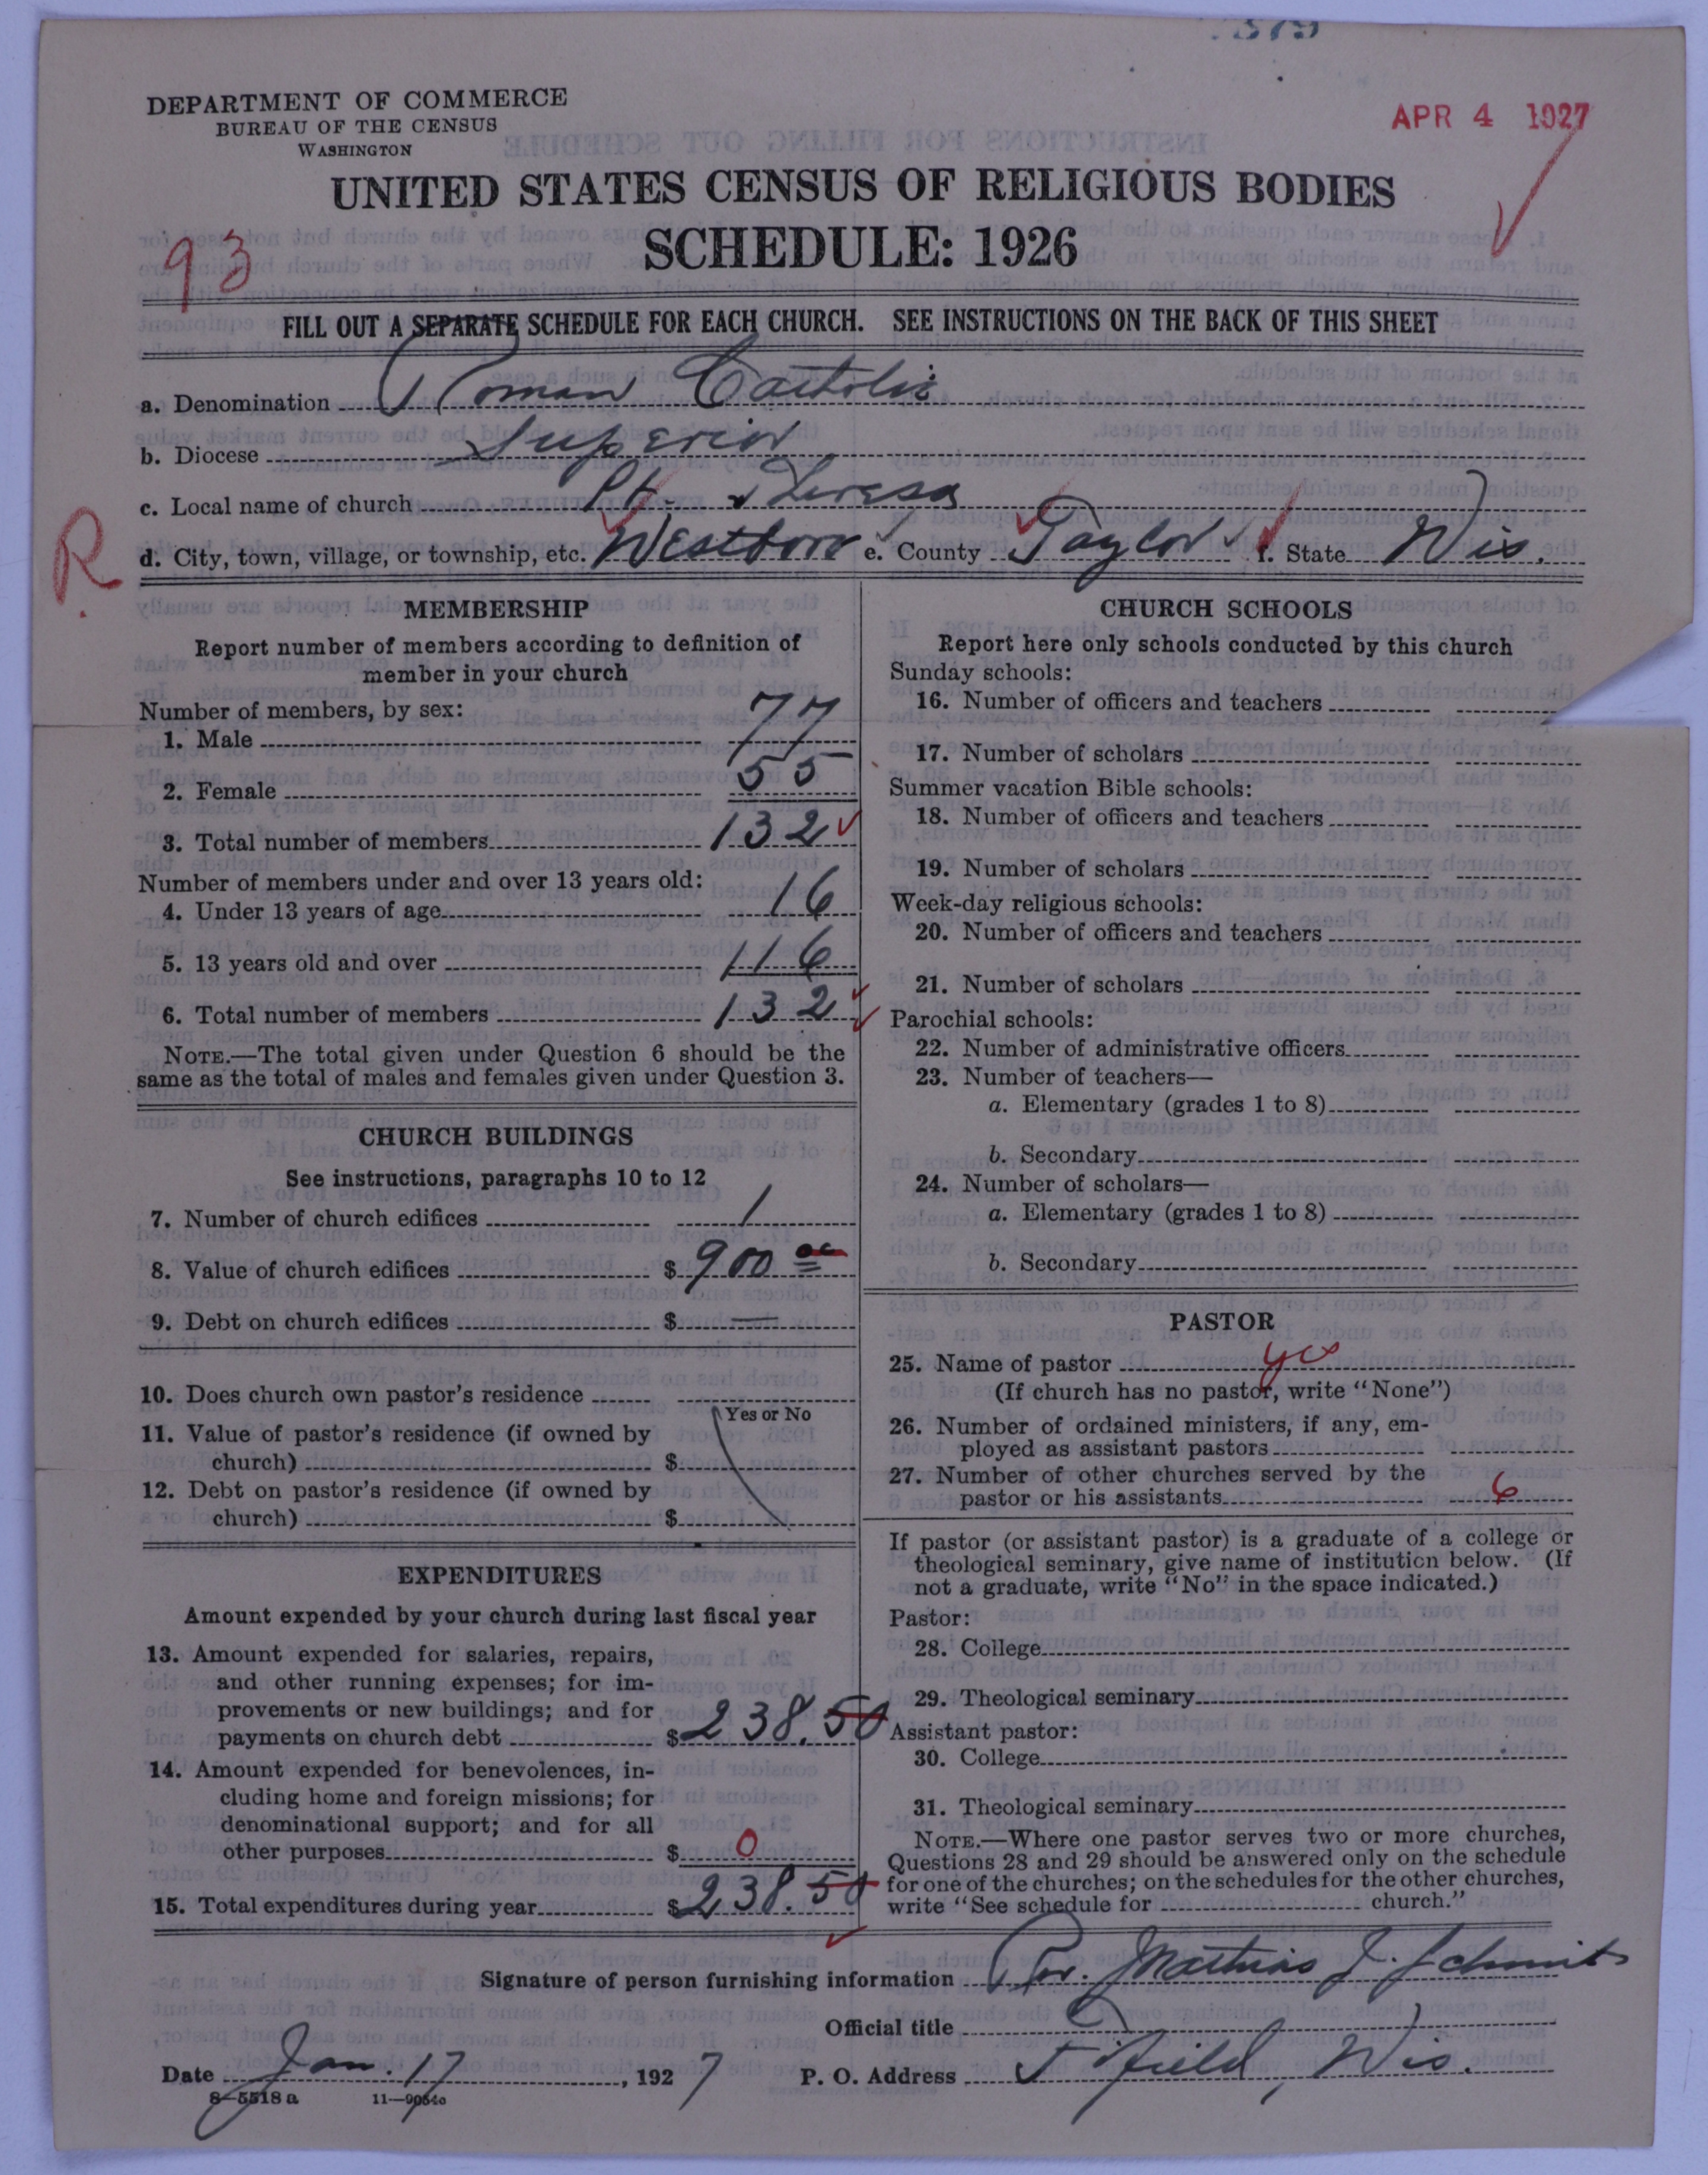 379
DEPARTMENT OF COMMERCE
BUREAU OF THE CENSUS
WASHINGTON
APR 4 1927
UNITED STATES CENSUS OF RELIGIOUS BODIES
SCHEDULE: 1926
93
FILL OUT A SEPARATE SCHEDULE FOR EACH CHURCH. SEE INSTRUCTIONS ON THE BACK OF THIS SHEET
a. Denomination Roman Catholic
b. Diocese Superior
c. Local name of church St. Theresa
R.
d. City, town, village, or township, etc. Westboro e. County Taylor f. State Wis.
MEMBERSHIP
Report number of members according to definition of
member in your church
Number of members, by sex:
1. Male 77
2. Female 55
3. Total number of members 132
Number of members under and over 13 years old:
4. Under 13 years of age 16
5. 13 years old and over 116
6. Total number of members 132
NOTE.—The total given under Question 6 should be the
same as the total of males and females given under Question 3.
CHURCH BUILDINGS
See instructions, paragraphs 10 to 12
7. Number of church edifices 1
8. Value of church edifices $ 900 oo
9. Debt on church edifices $ —
10. Does church own pastor's residence
Yes or No
11. Value of pastor's residence (if owned by
church) $
12. Debt on pastor's residence (if owned by
church) $
EXPENDITURES
Amount expended by your church during last fiscal year
13. Amount expended for salaries, repairs,
and other running expenses; for im-
provements or new buildings; and for
payments on church debt $ 238.50
14. Amount expended for benevolences, in-
cluding home and foreign missions; for
denominational support; and for all
other purposes $ 0
15. Total expenditures during year $ 238.50
CHURCH SCHOOLS
Report here only schools conducted by this church
Sunday schools:
16. Number of officers and teachers
17. Number of scholars
Summer vacation Bible schools:
18. Number of officers and teachers
19. Number of scholars
Week-day religious schools:
20. Number of officers and teachers
21. Number of scholars
Parochial schools:
22. Number of administrative officers
23. Number of teachers—
a. Elementary (grades 1 to 8)
b. Secondary
24. Number of scholars—
a. Elementary (grades 1 to 8)
b. Secondary
PASTOR
25. Name of pastor yes
(If church has no pastor, write "None")
26. Number of ordained ministers, if any, em-
ployed as assistant pastors
27. Number of other churches served by the
pastor or his assistants 6
If pastor (or assistant pastor) is a graduate of a college or
theological seminary, give name of institution below. (If
not a graduate, write "No" in the space indicated.)
Pastor:
28. College
29. Theological seminary
Assistant pastor:
30. College
31. Theological seminary
NOTE.—Where one pastor serves two or more churches,
Questions 28 and 29 should be answered only on the schedule
for one of the churches; on the schedules for the other churches,
write "See schedule for church."
Signature of person furnishing information Rev. Mathias J. Schmitz
Official title
Date Jan. 17, 1927 P. O. Address Fifield, Wis.
8—5518 a 11—9054o